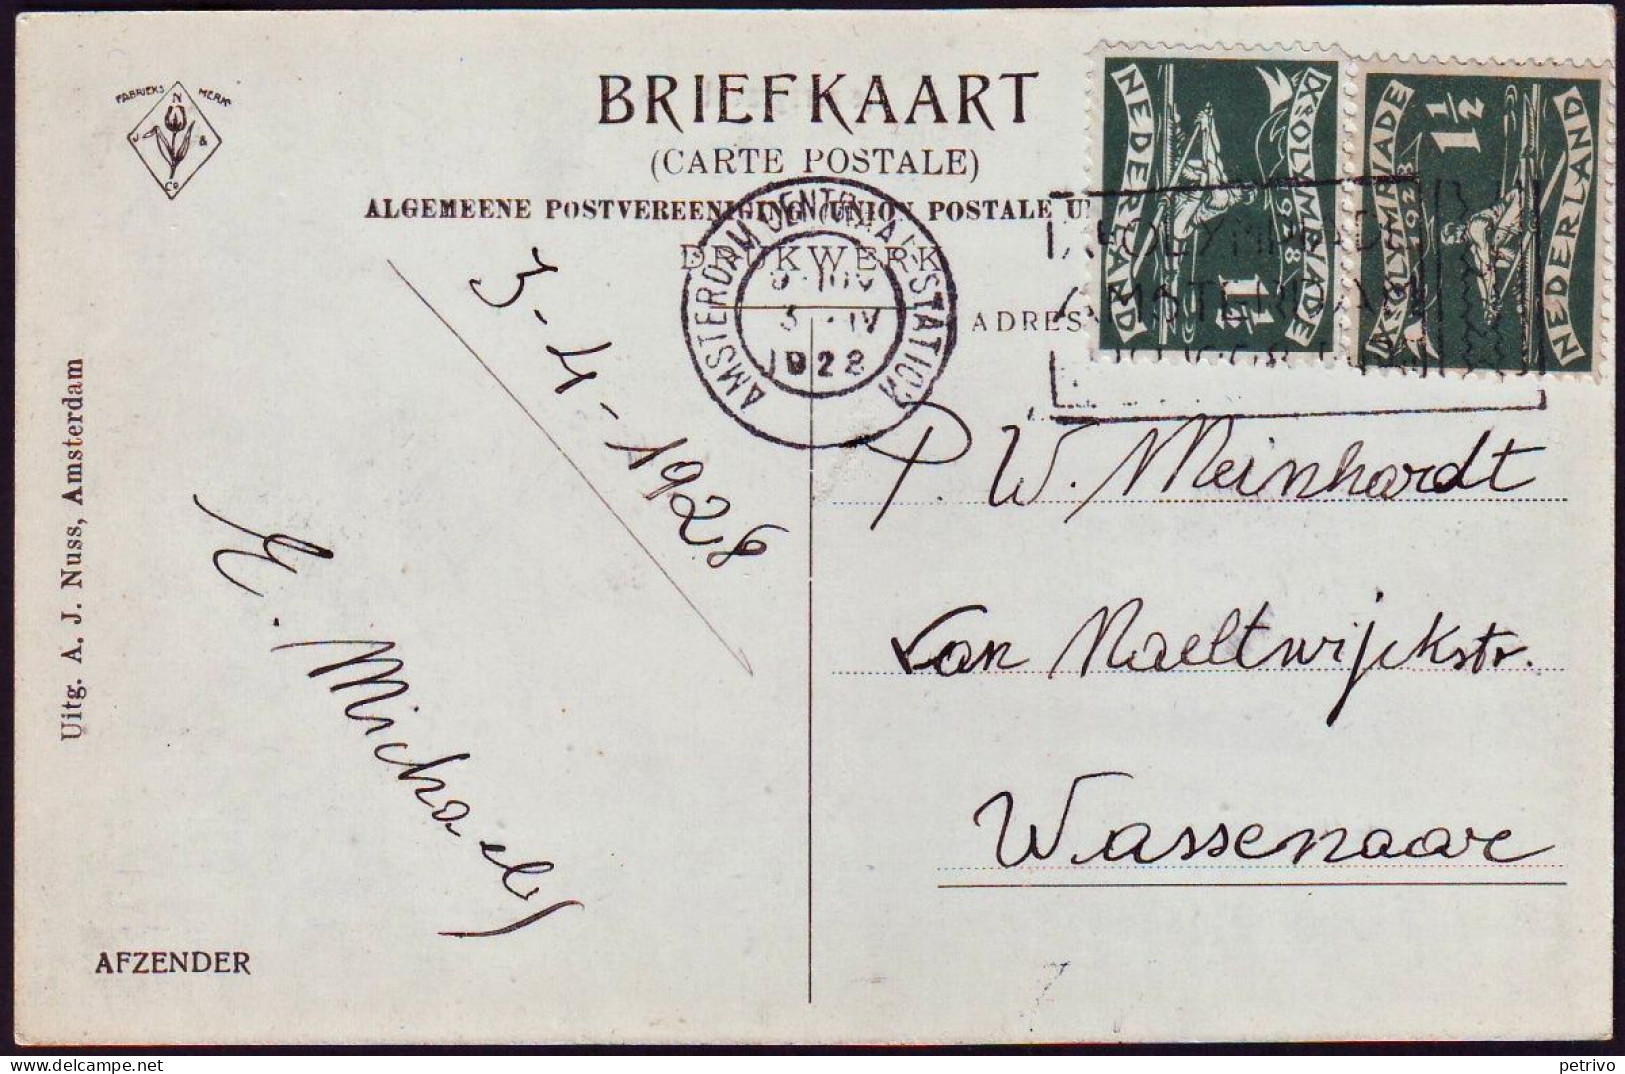 FABRIEKS MERK
N
J &
Co
BRIEFKAART
(CARTE POSTALE)
ALGEMEENE POSTVEREENIGING (UNION POSTALE
DRUKWERK
ADRES
AMSTERDAM CENTRAAL STATION
3 IV
1928
IXE OLYMPIADE
1928
NEDERLAND
1½
IXE OLYMPIADE
1928
NEDERLAND
1½
OLYMPIADE
AMSTERDAM
3-4-1928
E. Michaels
P. W. Meinhardt
van Naeltwijckstr.
Wassenaar
Uitg. A. J. Nuss, Amsterdam
AFZENDER
petrivo